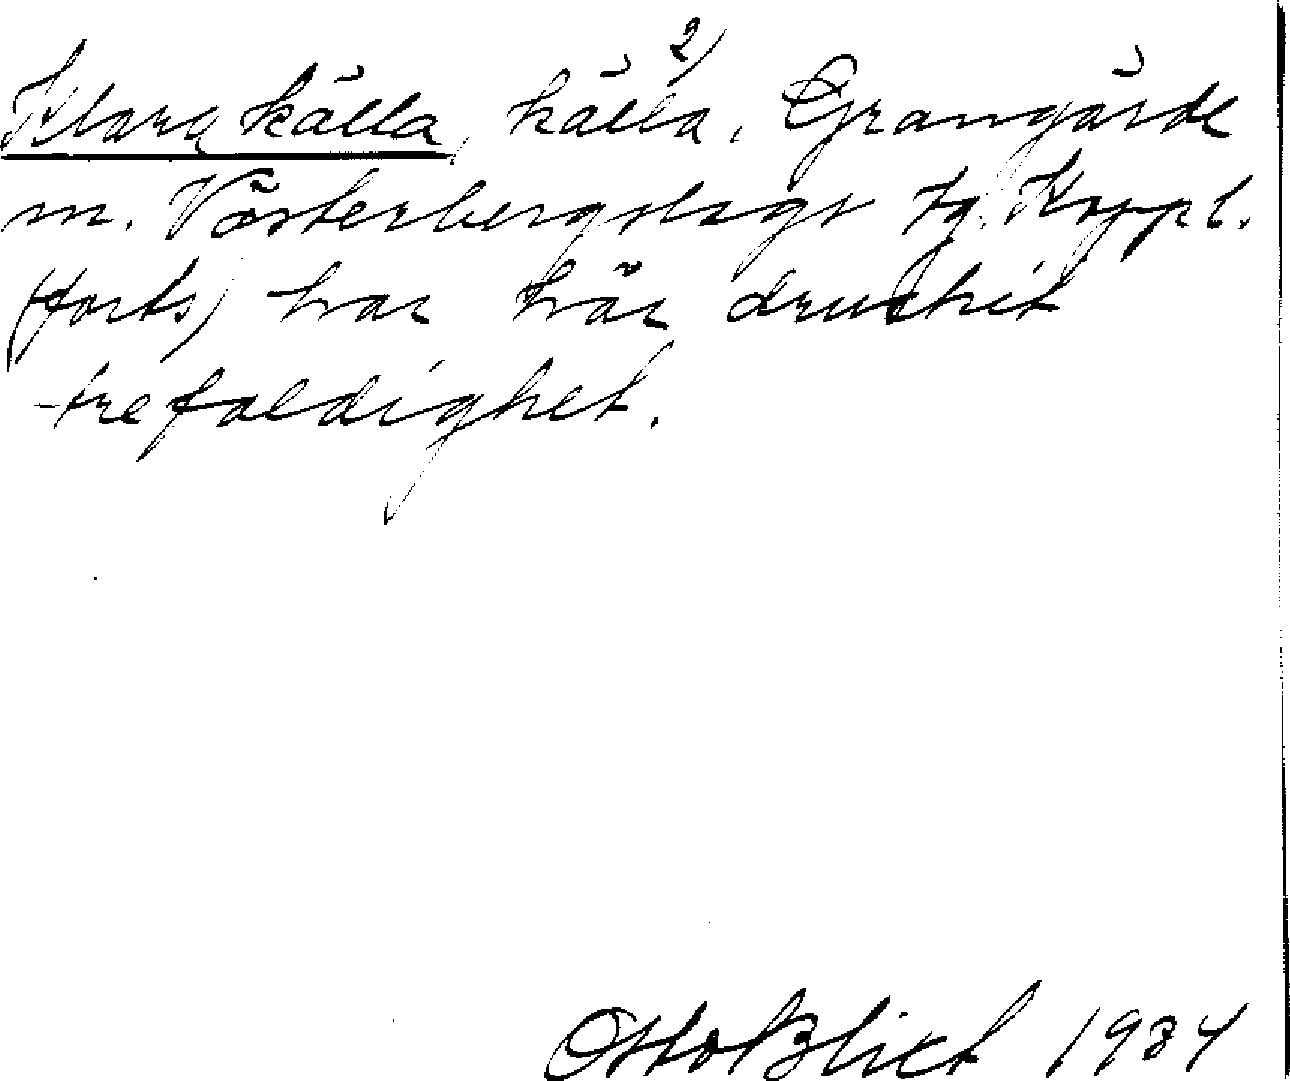 Klara källa, källa, 2) Grangärde
m. Västerbergslags tg. Koppl.
(forts) har här druckit
trefaldighet.
Otto Blixt 1934